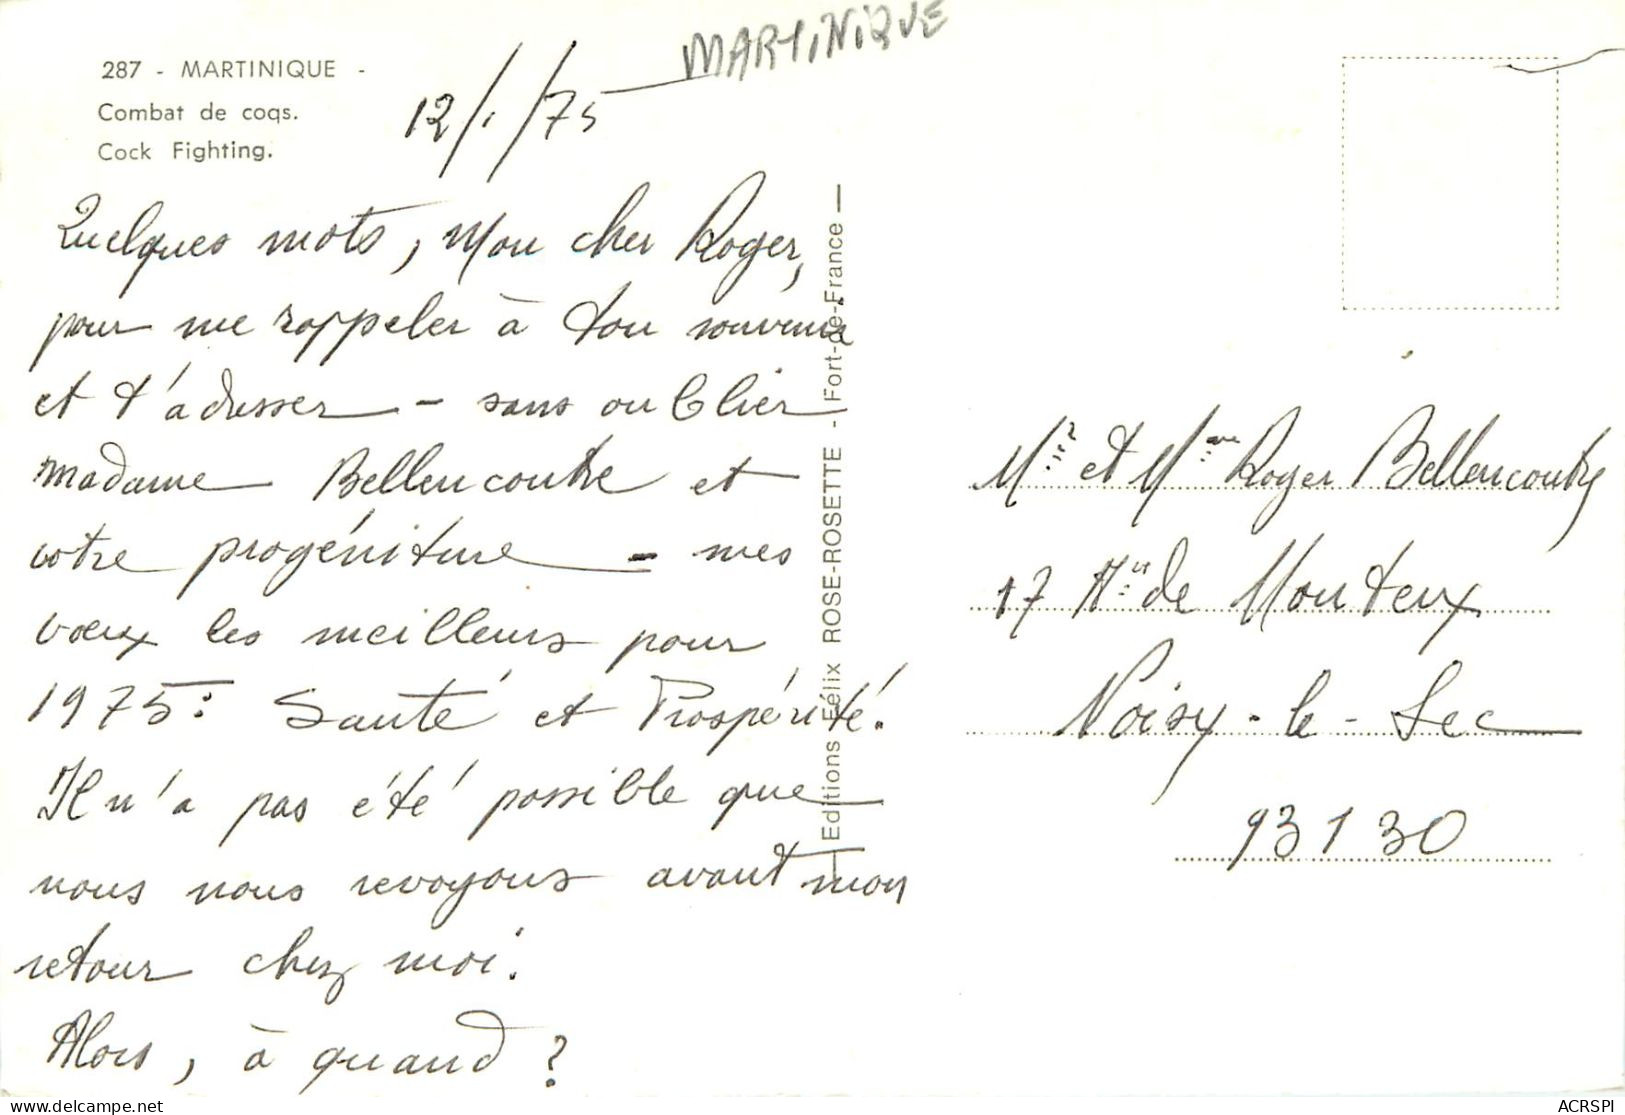 MARTINIQUE
287 - MARTINIQUE -
Combat de coqs.
Cock Fighting.
12/1/75
Quelques mots, Mon cher Roger,
pour me rappeler à ton souvenir
et t'adresser - sans oublier
madame Bellencoutre et
votre progéniture - mes
voeux les meilleurs pour
1975 : Santé et Prospérité.
Il n'a pas été possible que
nous nous revoyons avant mon
retour chez moi.
Alors, à quand ?
Editions Félix ROSE-ROSETTE - Fort-de-France
Mr et Mme Roger Bellencoutre
17 de Monteux
Noisy-le-Sec
93130
delcampe.net
ACRSPI